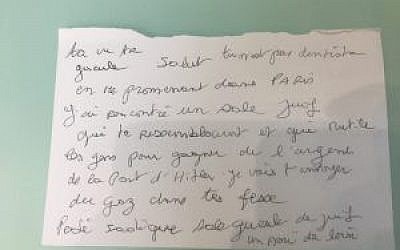 ta vu ta
gueule salut dentiste
en me promenant dans PARIS
j'ai rencontré un sale juif
qui te ressemblaient et qui mutile
les gens pour gagner de l'argent
de la Part d'Hitler je vais t'envoyer
du gaz dans tes fesse
Pédé sale gueule de juif
un de